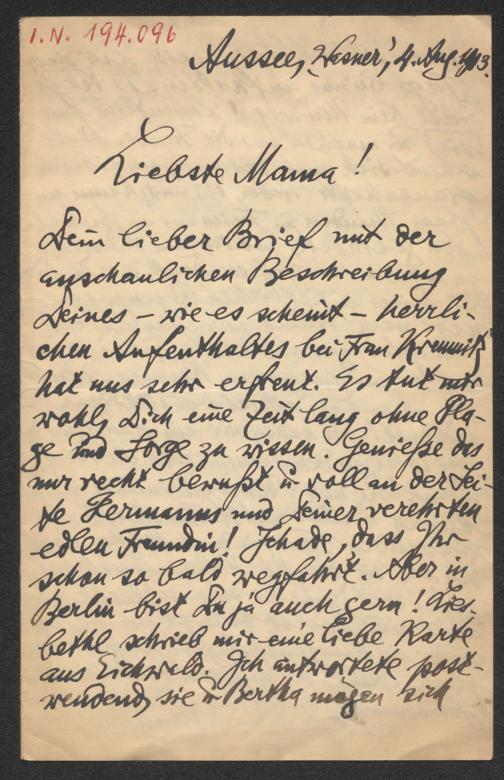 I.N. 194.096
Aussee, Wasner, 4. Aug. 1913.
Liebste Mama!
Dein lieber Brief mit der
anschaulichen Beschreibung
Deines – wie es scheint – herrli-
chen Aufenthaltes bei Frau Kremnitz
hat uns sehr erfreut. Es tut mir
wohl, Dich eine Zeit lang ohne Pla-
ge und Sorge zu wissen. Genieße das
nur recht bewußt u voll an der Sei-
te Hermanns und Deiner verehrten
edlen Freundin! Schade, dass Ihr
schon so bald wegfahrt. Aber in
Berlin bist Du ja auch gern! Lies-
bethl schrieb mir eine liebe Karte
aus Eichwald. Ich antwortete post-
wendend, sie u Bertha mögen sich